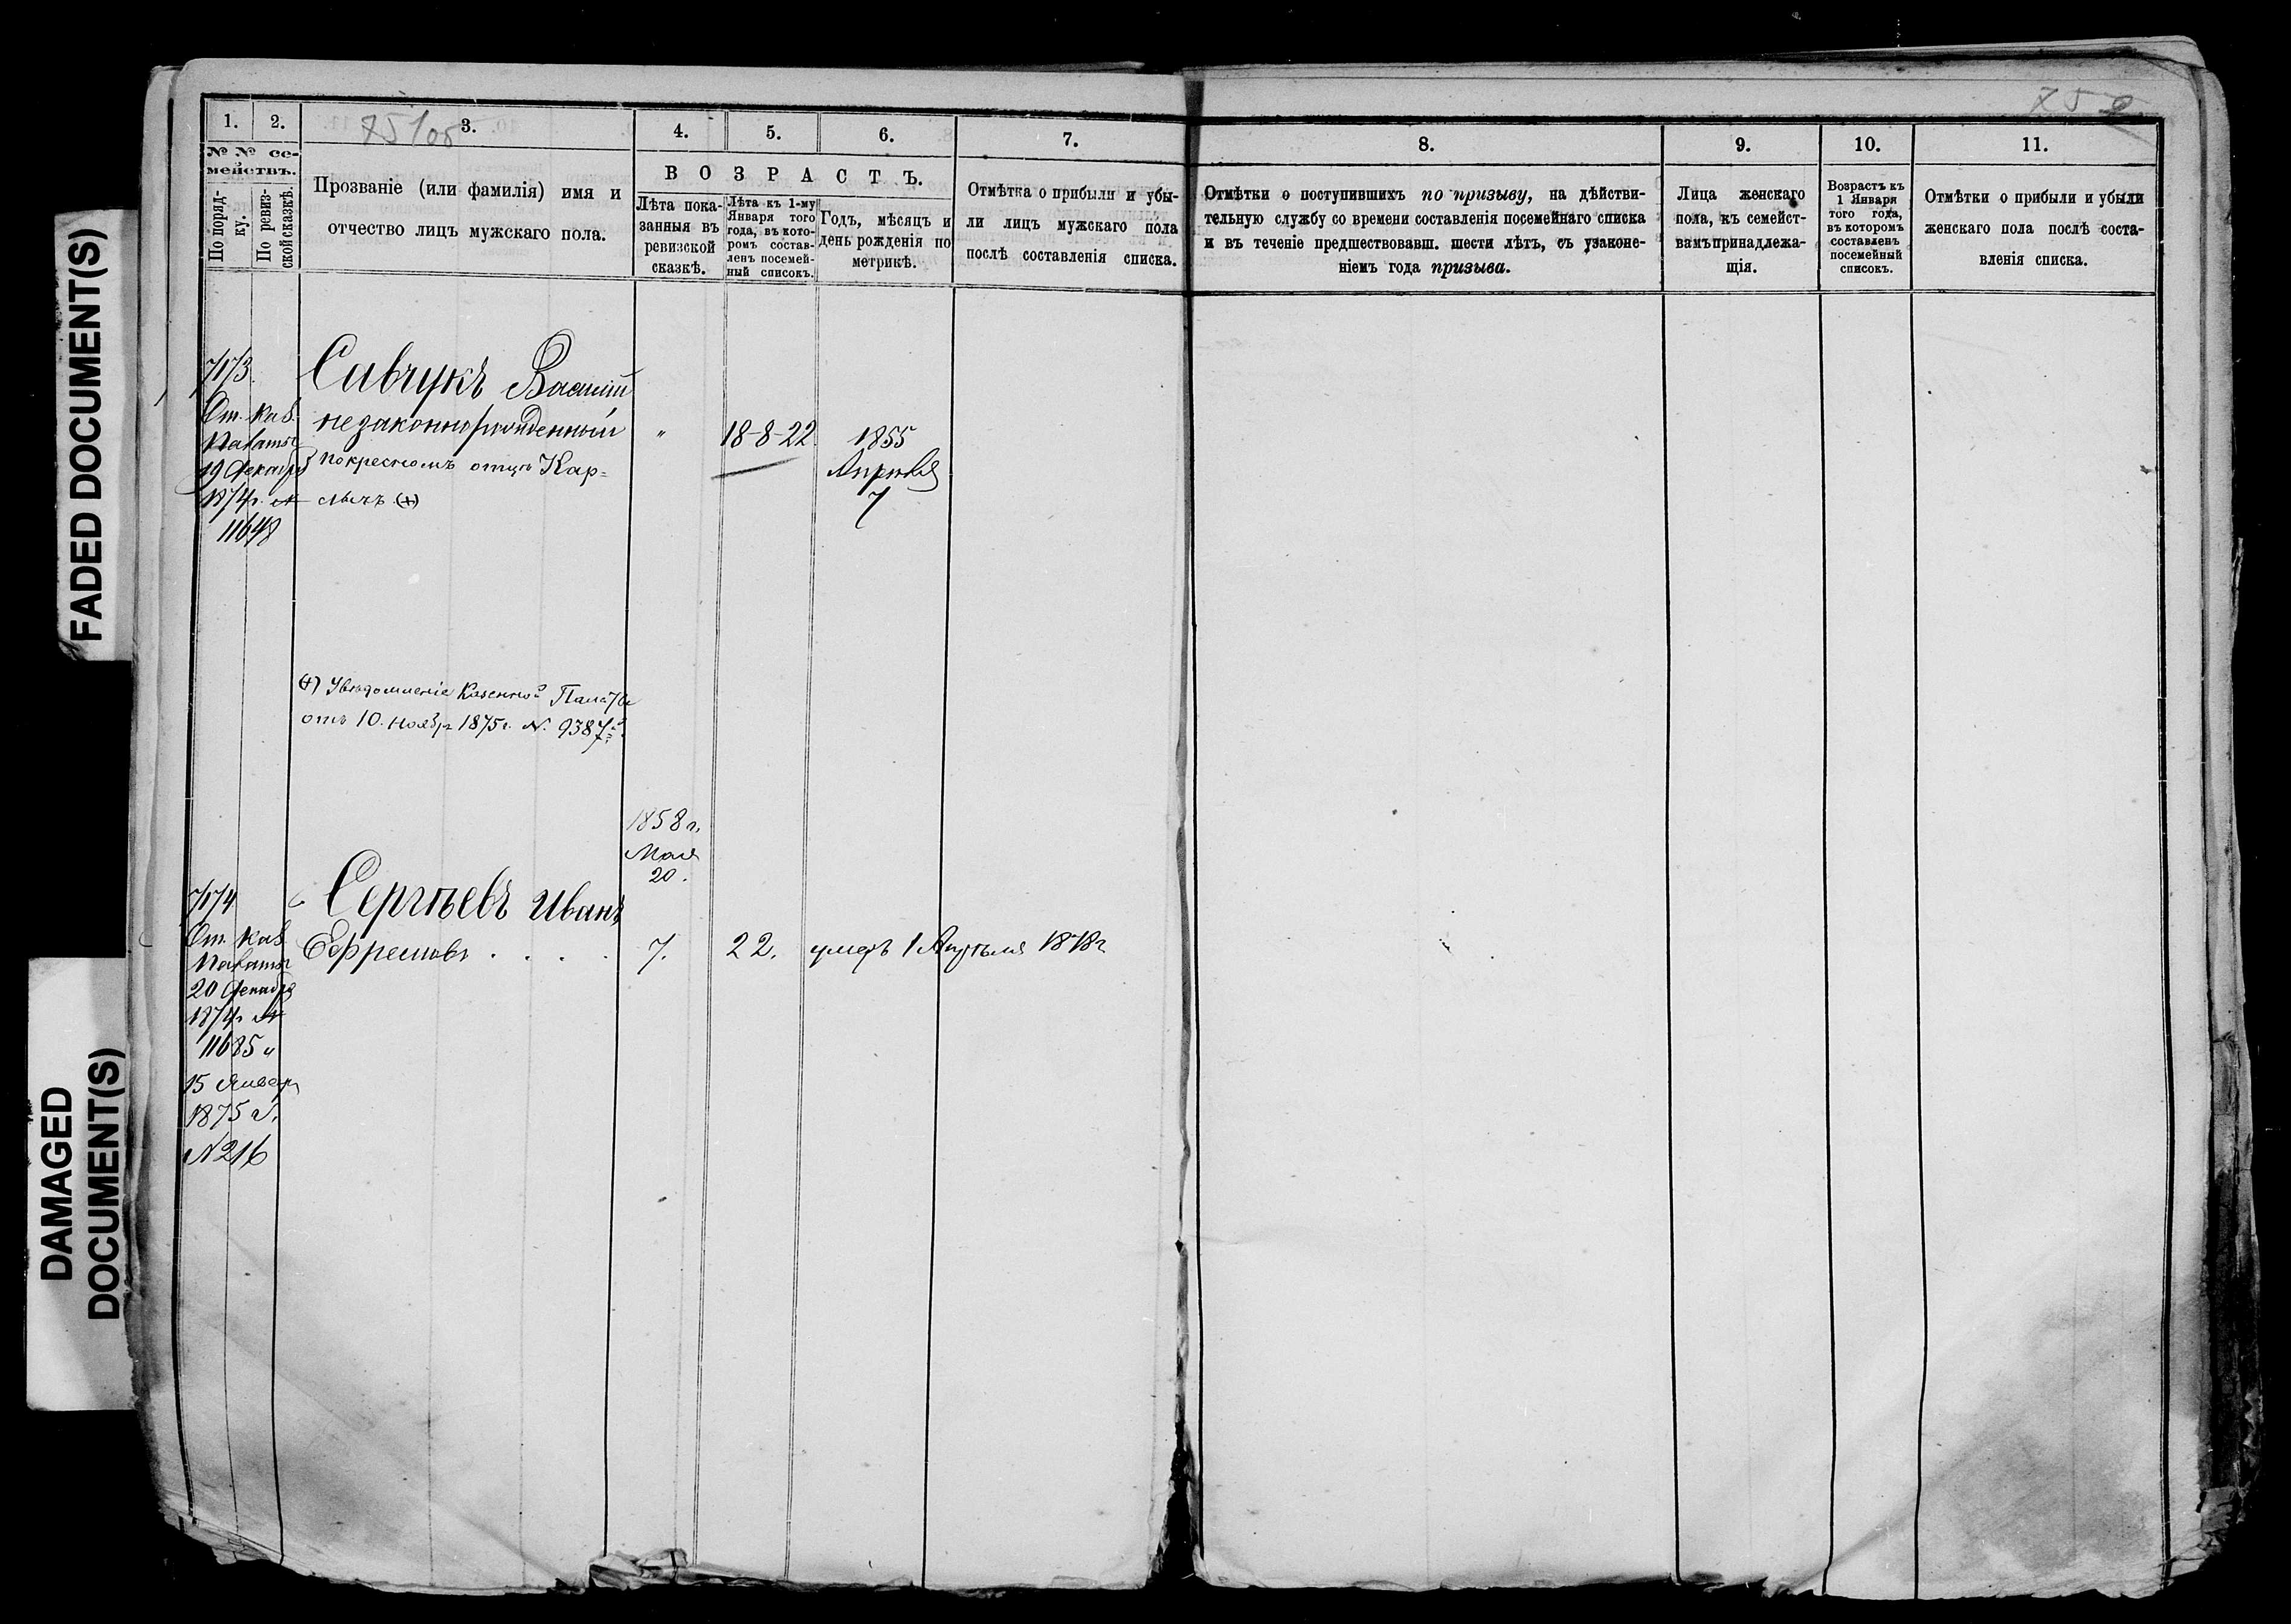 FADED DOCUMENT(S)
DAMAGED
DOCUMENT(S)
1.
2.
3.
4.
5.
6.
7.
8.
9.
10.
11.
№ № се-
мействъ.
По поряд-
ку.
По ревиз-
ской сказкѣ.
Прозваніе (или фамилія) имя и
отчество лицъ мужскаго пола.
ВОЗРАСТЪ.
Лѣта пока-
занныя въ
ревизской
сказкѣ.
Лѣта къ 1-му
Января того
года, въ кото-
ромъ состав-
ленъ посемей-
ный списокъ.
Годъ, мѣсяцъ и
день рожденія по
метрикѣ.
Отмѣтка о прибыли и убы-
ли лицъ мужскаго пола
послѣ составленія списка.
Отмѣтки о поступившихъ по призыву, на дѣйстви-
тельную службу со времени составленія посемейнаго списка
и въ теченіе предшествовавш. шести лѣтъ, съ узаконе-
ніемъ года призыва.
Лица женскаго
пола, къ семейст-
вамъ принадлежа-
щія.
Возрастъ къ
1 Января
того года,
въ которомъ
составленъ
посемейный
списокъ.
Отмѣтки о прибыли и убыли
женскаго пола послѣ соста-
вленія списка.
7173.
От. Каз.
Палаты
19 Декабря
1874г. №
11648
Савчукъ Василій
незаконнорожденный
по крестномъ отцѣ Кар-
(+)
"
18-8-22
1855
Апрѣля
7
(+) Увѣдомленіе Казенной Палаты
отъ 10. Ноября 1875г. №. 9387
1858 г.
Мая
20.
7174
От. Каз.
Палаты
20 Декабря
1874г №
11685 и
15 Января
1875 г.
№ 216
Сергѣевъ Иванъ
Ефремовъ . . . .
7.
22.
умеръ 1 Апрѣля 1878г